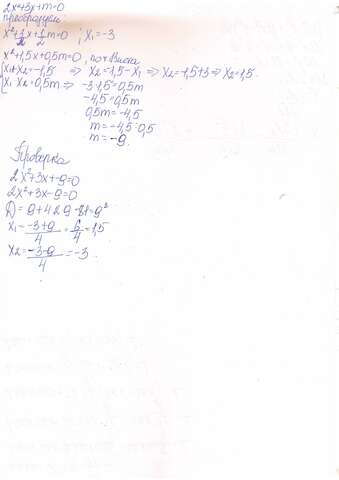 2x²+3x+m=0
преобразуем:
x²+1 1/2 x+1/2 m=0 ; x₁=-3
x²+1,5x+0,5m=0, по т. Виета
{x₁+x₂=-1,5 ⇒ x₂=-1,5-x₁ ⇒ x₂=-1,5+3 ⇒ x₂=1,5.
{x₁·x₂=0,5m ⇒ -3·1,5=0,5m
-4,5=0,5m
0,5m=-4,5
m=-4,5:0,5
m=-9.
Проверка
2x²+3x+-9=0
2x²+3x-9=0
D=9+4·2·9=81=9²
x₁=-3+9/4=6/4=1,5
x₂=-3-9/4=-3.